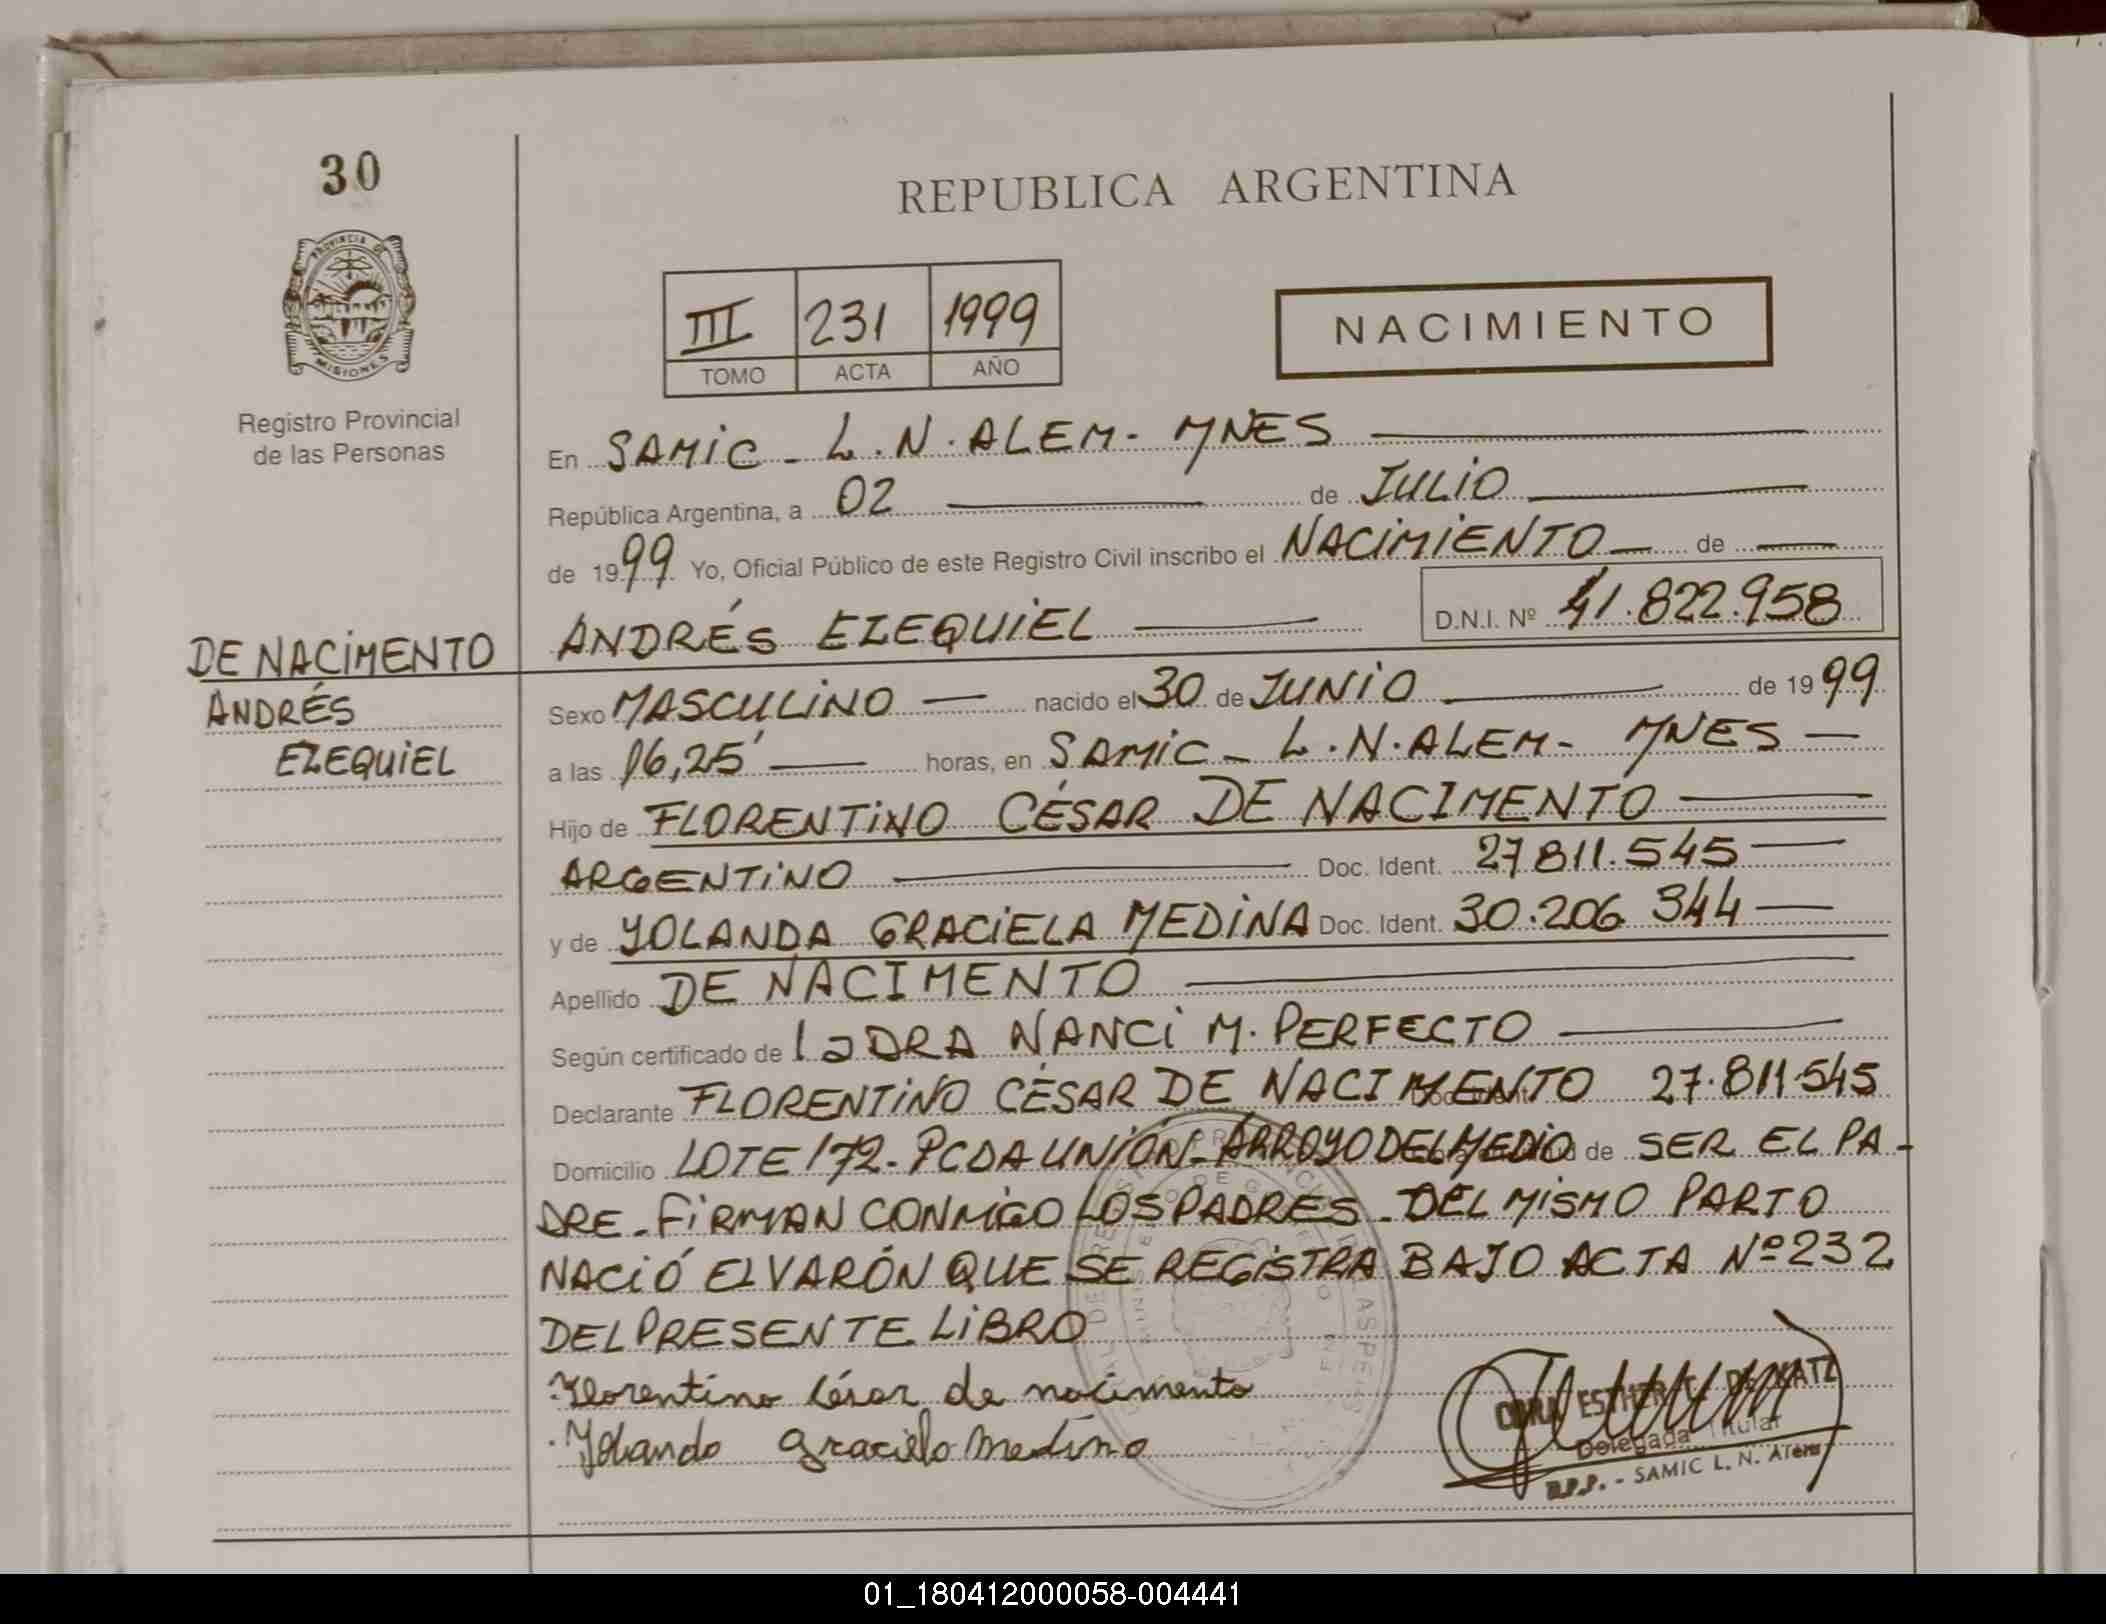 30
REPUBLICA ARGENTINA
PROVINCIA DE
MISIONES
III 231 1999
TOMO ACTA AÑO
NACIMIENTO
Registro Provincial
de las Personas
En SAMIC - L.N. ALEM - MNES
República Argentina, a 02 de JULIO
de 1999 Yo, Oficial Público de este Registro Civil inscribo el NACIMIENTO de
ANDRÉS EZEQUIEL D.N.I. Nº 41.822.958
DE NACIMENTO
ANDRÉS
EZEQUIEL
Sexo MASCULINO nacido el 30 de JUNIO de 1999
a las 16,25' horas, en SAMIC - L.N. ALEM - MNES
Hijo de FLORENTINO CÉSAR DE NACIMENTO
ARGENTINO Doc. Ident. 27811.545
y de YOLANDA GRACIELA MEDINA Doc. Ident. 30.206 344
Apellido DE NACIMENTO
Según certificado de la DRA NANCI M. PERFECTO
Declarante FLORENTINO CÉSAR DE NACIMENTO 27.811.545
Domicilio LOTE 172 - PCDA UNIÓN - ARROYO DEL MEDIO de SER EL PA-
DRE - FIRMAN CONMIGO LOS PADRES - DEL MISMO PARTO
NACIÓ EL VARÓN QUE SE REGISTRA BAJO ACTA Nº 232
DEL PRESENTE LIBRO
Florentino César de nacimento
Yolanda Graciela Medina
ESTHER DE KATZ
Delegada Titular
R.P.P. - SAMIC L. N. Alem
01_180412000058-004441